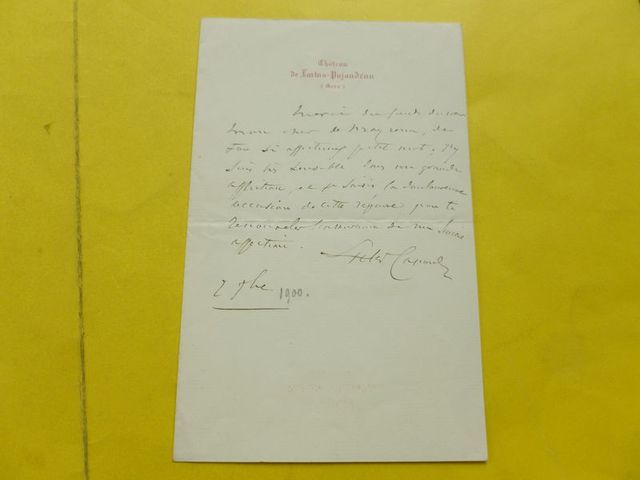 Château
de Lartus-Pujaudran
(Gers)
Merci du fond du cœur
mon cher de
si affectueux petit mot. J'y
suis très sensible dans ma grande
affliction, et je saisis la douloureuse
occasion de cette réponse pour te
renouveler l'assurance de ma
affection.
7 9bre 1900.